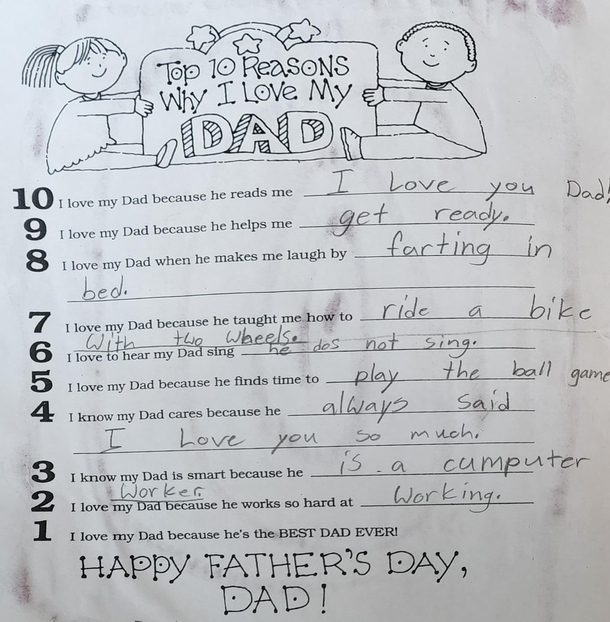 Top 10 Reasons
Why I Love My
DAD
10 I love my Dad because he reads me I Love you Dad!
9 I love my Dad because he helps me get ready.
8 I love my Dad when he makes me laugh by farting in
bed.
7 I love my Dad because he taught me how to ride a bike
With two wheels.
6 I love to hear my Dad sing he dos not sing.
5 I love my Dad because he finds time to play the ball game
4 I know my Dad cares because he always said
I Love you so much.
3 I know my Dad is smart because he is a cumputer
Worker.
2 I love my Dad because he works so hard at Working.
1 I love my Dad because he's the BEST DAD EVER!
HAPPY FATHER'S DAY,
DAD!